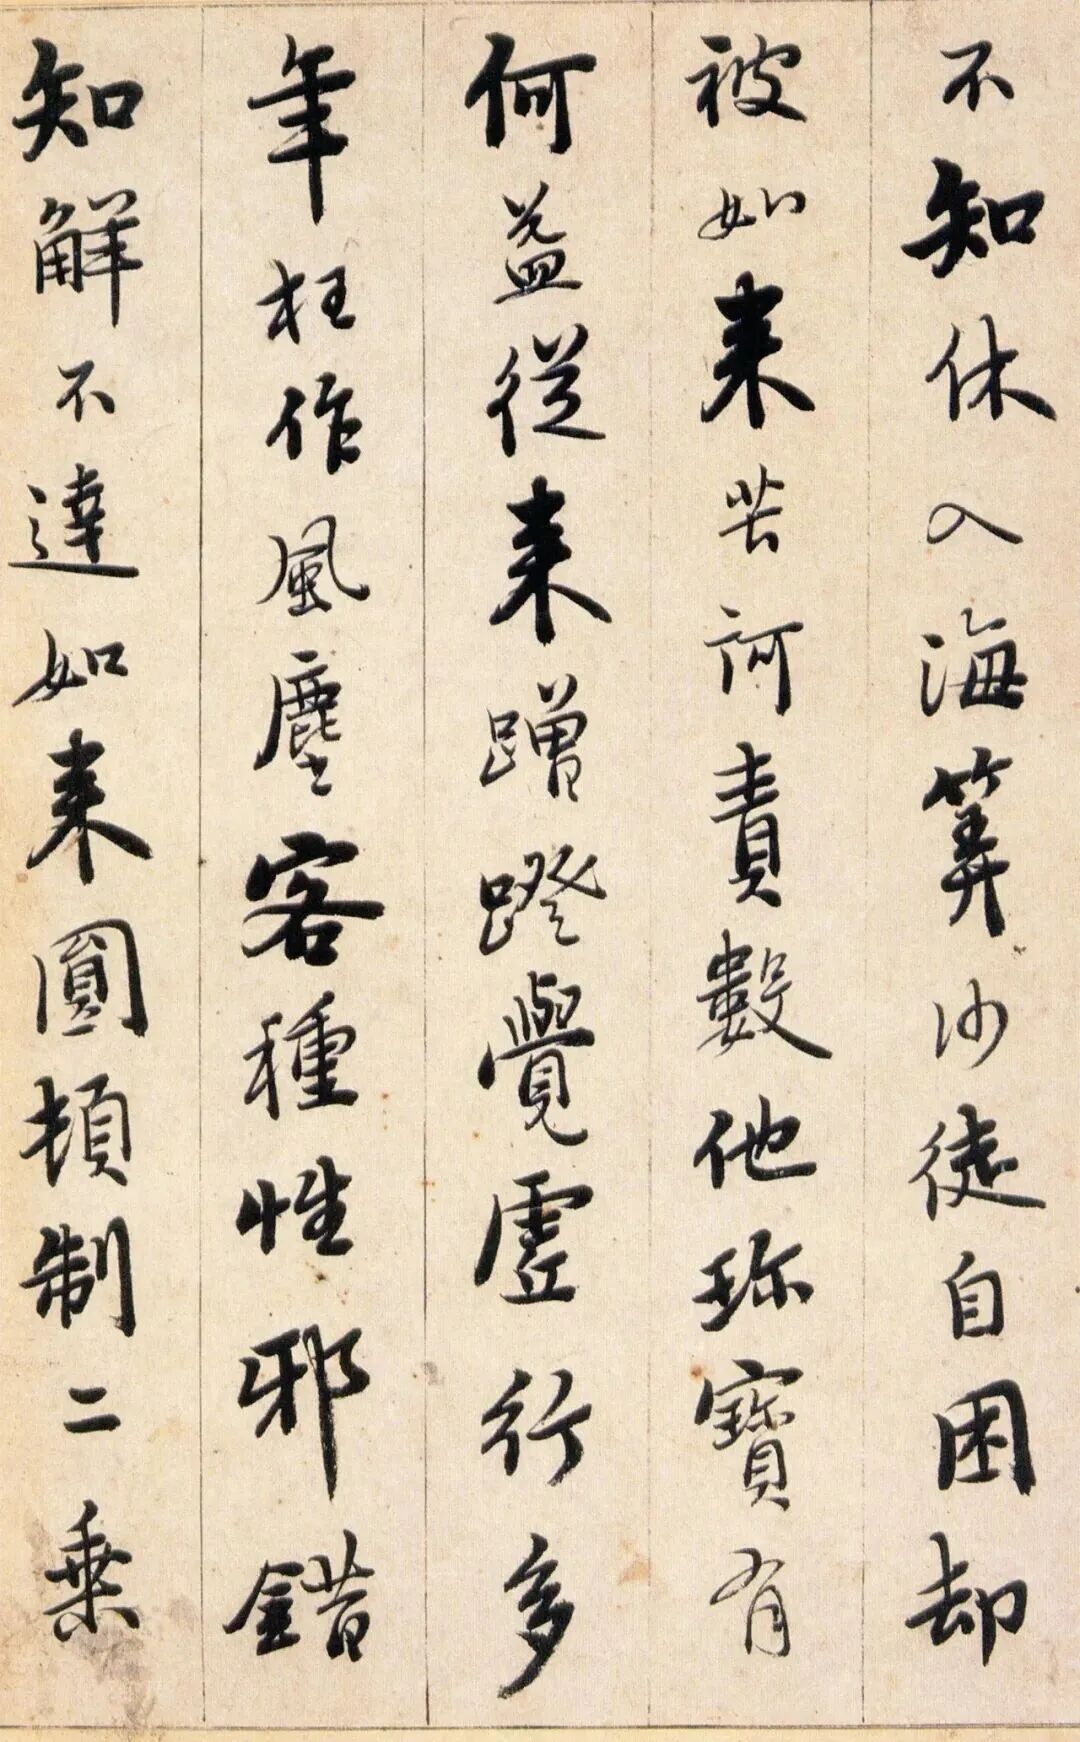 不知休入海筭沙徒自困却
被如来苦訶責數他珎寶有
何益從来蹭蹬覺虚行多
年枉作風塵客種性邪錯
知解不達如来圓頓制二乗